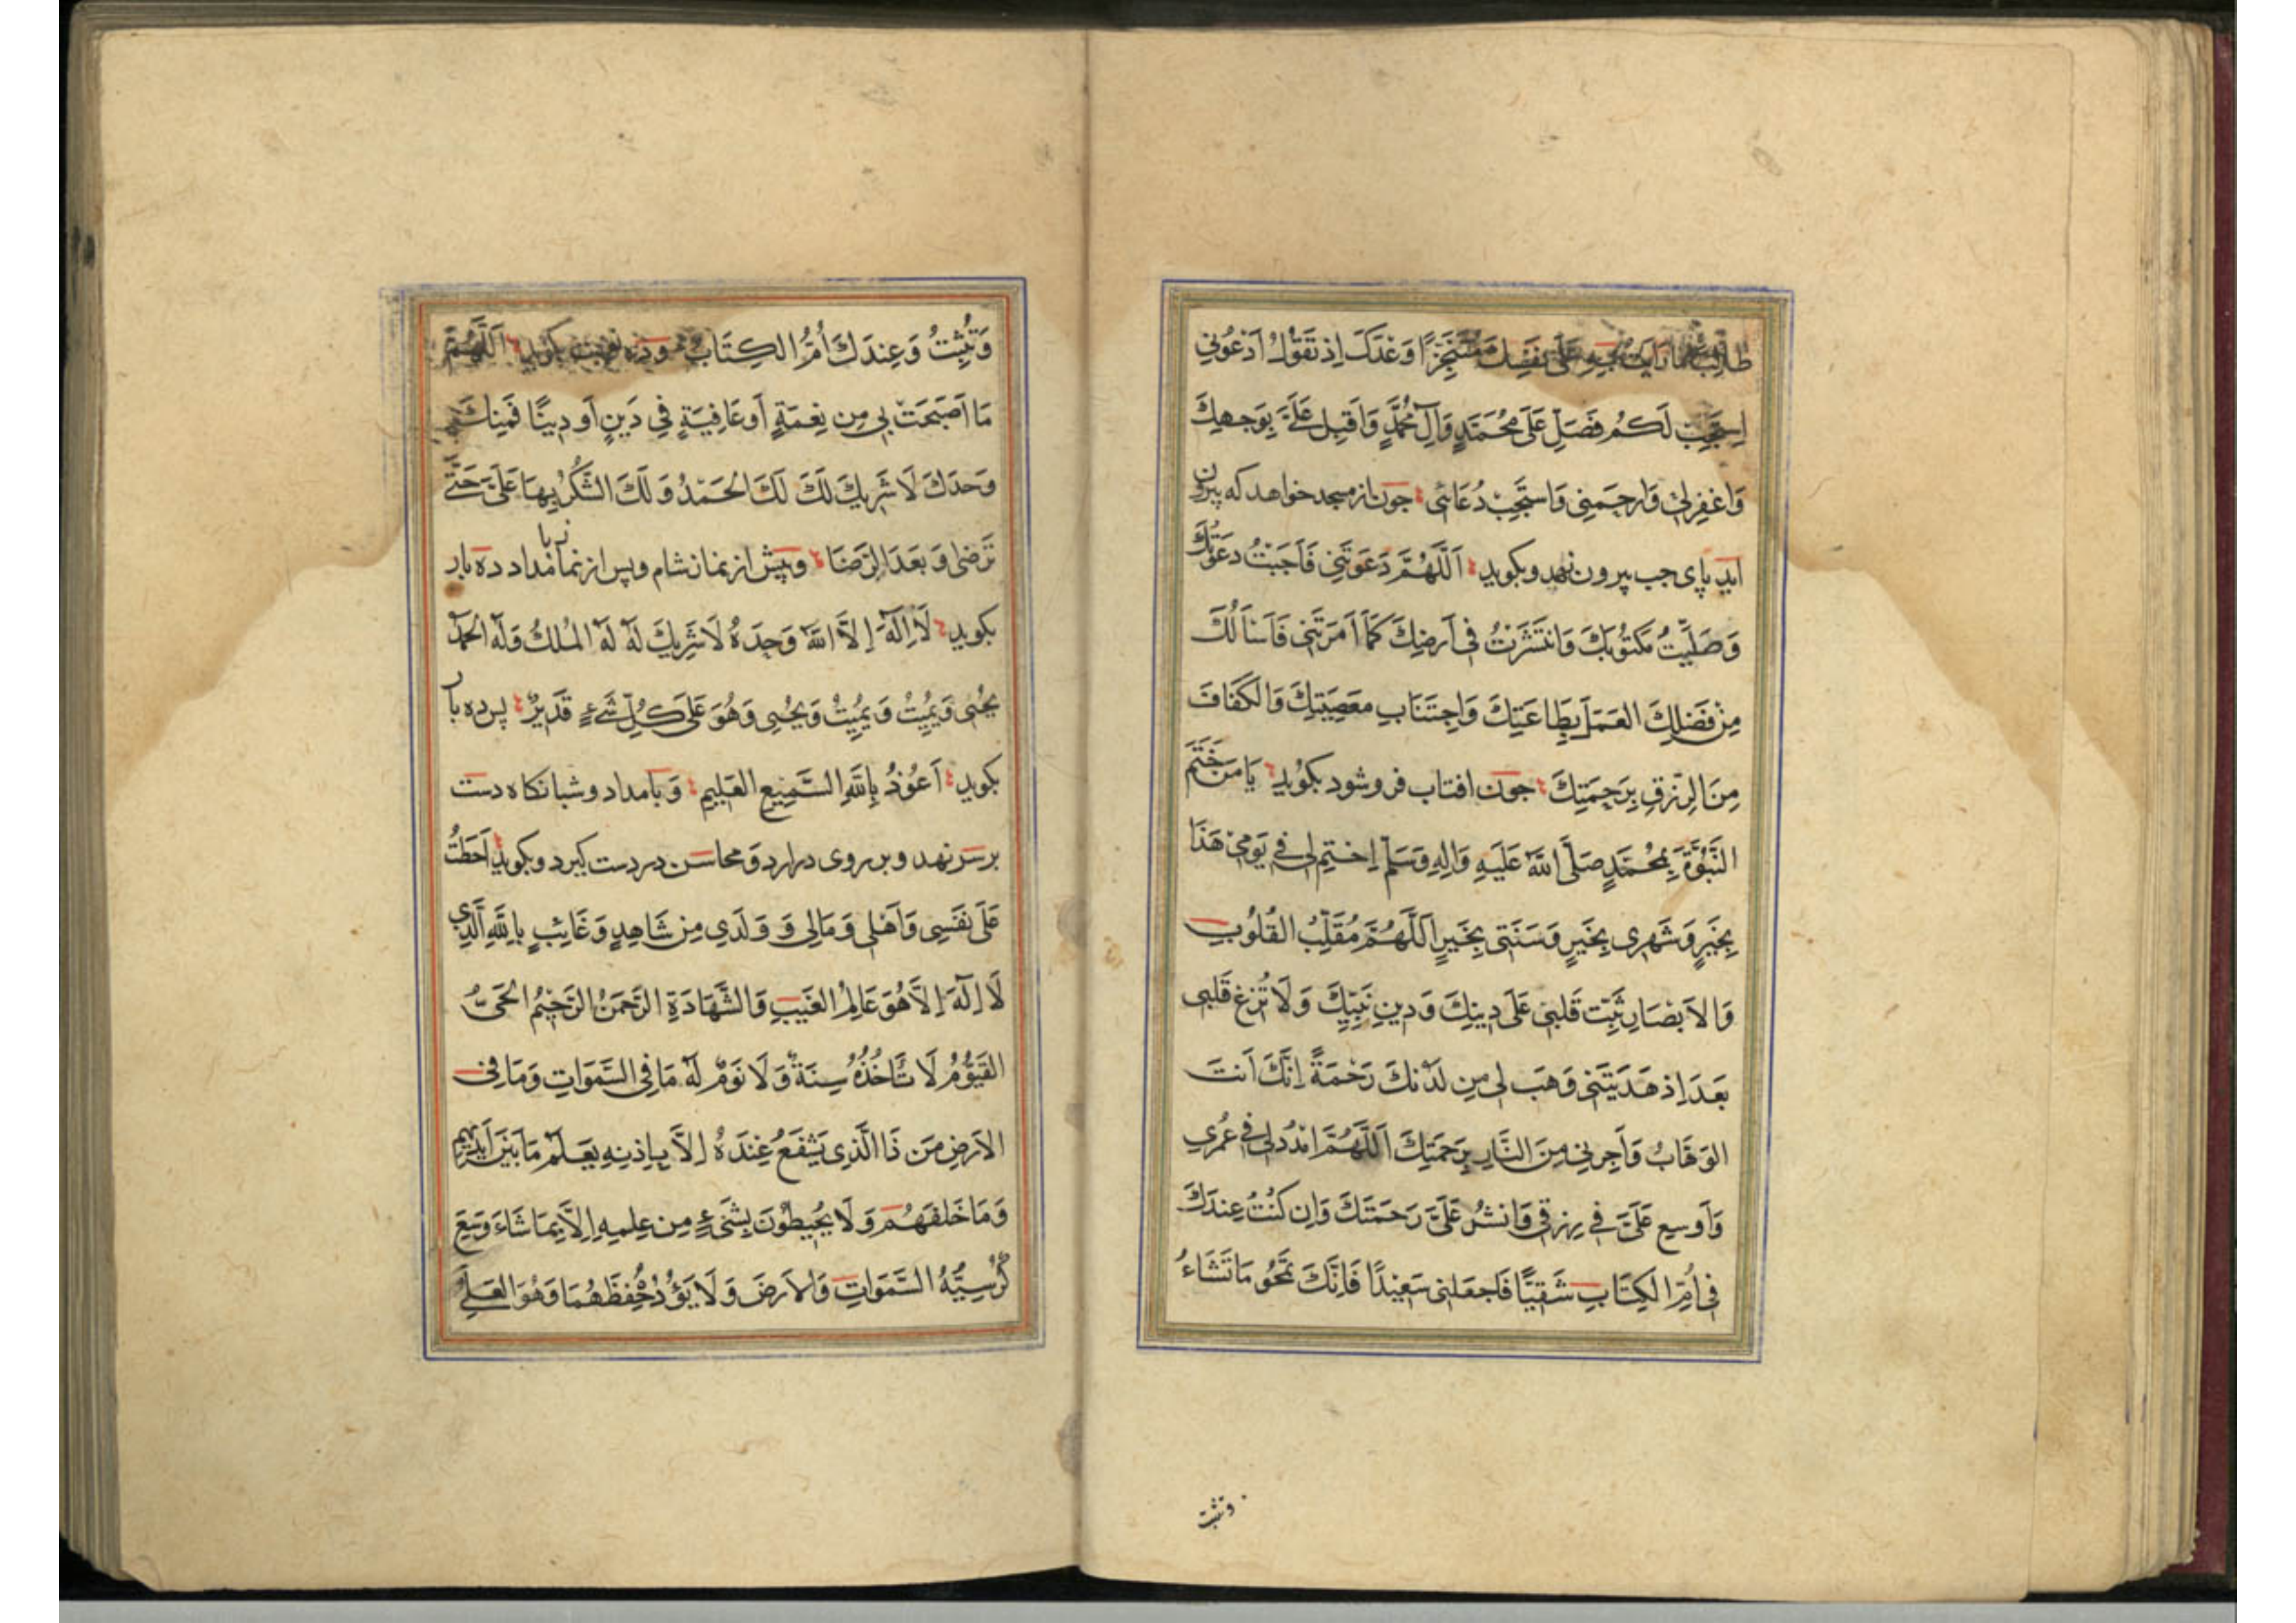 طالبا وَعْدَكَ اِذ تَقُولُ اُدْعُونِي
اِسْتَجِبْ لَكُمْ فَصَلِّ عَلَى مُحَمَّدٍ وَآلِ مُحَمَّدٍ وَاَقبِل عَلَىَّ بِوَجهِكَ
وَاغفِرلِي وَارحَمنِي وَاستَجِبْ دُعَائِي جون از مسجد خواهد كه بيرون
ايد پاى جب بيرون نهد وبكويد اَللَّهُمَّ دَعَوتَنِي فَاَجَبْتُ دَعوَتَكَ
وَصَلَّيتُ مَكتُوبَكَ وَانتَشَرْتُ فِي اَرضِكَ كَمَا اَمَرتَنِي فَاَسئَالُكَ
مِنْ فَضلِكَ العَمَلَ بِطَاعَتِكَ وَاجتِنَابِ مَعصِيَتِكَ وَالكَفَافَ
مِنَ الرِّزقِ بِرَحمَتِكَ جون افتاب فروشود بكويد يَا مَن خَتَمَ
النُّبُوَّةَ بِمُحَمَّدٍ صَلَّى اللهُ عَلَيهِ وَالِهِ وَسَلَّم اِختِم لِي فِي يَومِي هَذَا
بِخَيرٍ وَشَهرِي بِخَيرٍ وَسَنَتِي بِخَيرٍ اَللَّهُمَّ مُقَلِّبَ القُلُوبِ
وَالاَبصَارِ ثَبِّت قَلبِي عَلَى دِينِكَ وَدِينِ نَبِيِّكَ وَلَا تُزِغ قَلبِي
بَعدَ اِذ هَدَيتَنِي وَهَب لِي مِن لَدُنكَ رَحمَةً اِنَّكَ اَنتَ
الوَهَّابُ وَاَجِرنِي مِنَ النَّارِ بِرَحمَتِكَ اَللَّهُمَّ امْدُد لِي فِي عُمرِي
وَاَوسِع عَلَىَّ فِي رِزقِي وَانشُر عَلَىَّ رَحمَتَكَ وَاِن كُنتُ عِندَكَ
فِي اُمِّ الكِتَابِ شَقِيًّا فَاجعَلنِي سَعِيدًا فَاِنَّكَ تَمحُو مَا تَشَاءُ
وتثبت
وَتُثبِتُ وَعِندَكَ اُمُّ الكِتَابِ اَللَّهُمَّ
مَا اَصبَحَتْ بِي مِن نِعمَةٍ اَو عَافِيَةٍ فِي دَينٍ اَو دِينًا فَمِنكَ
وَحدَكَ لَا شَرِيكَ لَكَ لَكَ الحَمدُ وَلَكَ الشُّكرُ بِهَا عَلَىَّ حَتَّى
تَرضٰى وَبَعدَ الرِّضَا وپيش از نماز شام وپس از نماز بامداد ده بار
بكويد لَا اِلٰهَ اِلاَّ اللهُ وَحدَهُ لَا شَرِيكَ لَهُ لَهُ المُلكُ وَلَهُ الحَمدُ
يُحيِي وَيُمِيتُ وَيُمِيتُ وَيُحيِي وَهُوَ عَلَى كُلِّ شَيءٍ قَدِيرٌ پس ده بار
بكويد اَعُوذُ بِاللهِ السَّمِيعِ العَلِيمِ وَبامداد وشبانكاه دست
برسر نهد وبر روى درارد ومحاسن در دست كيرد وبكويد اَحَطتُ
عَلَى نَفسِي وَاَهلِي وَمَالِي وَ وَلَدِي مِن شَاهِدٍ وَغَائِبٍ بِاللهِ الَّذِي
لَا اِلٰهَ اِلاَّ هُوَ عَالِمُ الغَيبِ وَالشَّهَادَةِ الرَّحمَنُ الرَّحِيمُ الحَىُّ
القَيُّومُ لَا تَاخُذُهُ سِنَةٌ وَلَا نَومٌ لَهُ مَا فِي السَّمَوَاتِ وَمَا فِي
الاَرضِ مَن ذَا الَّذِي يَشفَعُ عِندَهُ اِلاَّ بِاِذنِهِ يَعلَمُ مَا بَينَ اَيدِيهِم
وَمَا خَلفَهُم وَلَا يُحِيطُونَ بِشَيءٍ مِن عِلمِهِ اِلاَّ بِمَا شَاءَ وَسِعَ
كُرسِيُّهُ السَّمَوَاتِ وَالاَرضَ وَلَا يَؤُدُهُ حِفظُهُمَا وَهُوَ العَلِيُّ